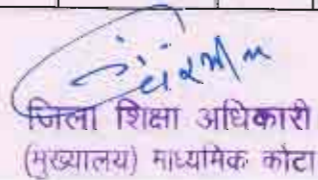 जिला शिक्षा अधिकारी
(मुख्यालय) माध्यमिक कोटा